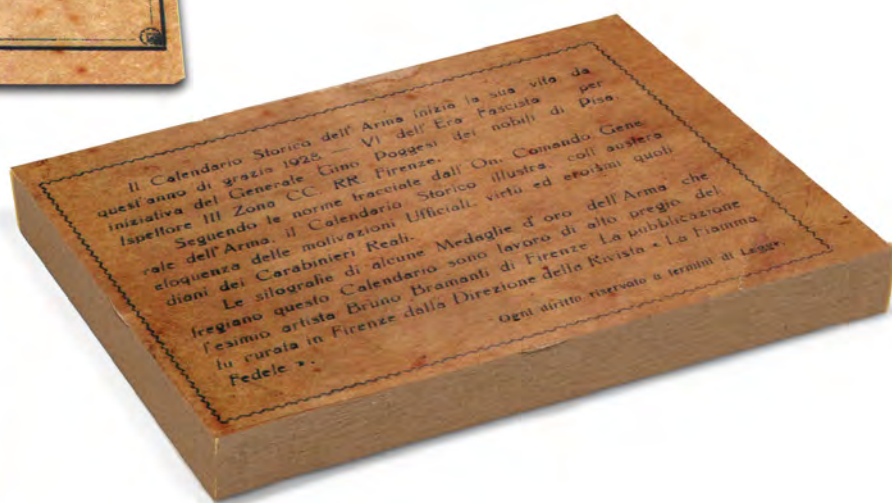 Il Calendario Storico dell'Arma inizia la sua vita da
quest'anno di grazia 1928 — VI dell'Era Fascista per
iniziativa del Generale Gino Poggesi dei nobili di Pisa.
Ispettore III Zona CC. RR. Firenze.
Seguendo le norme tracciate dall'On. Comando Gene
rale dell'Arma, il Calendario Storico illustra, coll'austera
eloquenza delle motivazioni Ufficiali, virtù ed eroismi quoti
diani dei Carabinieri Reali.
Le silografie di alcune Medaglie d'oro dell'Arma che
fregiano questo Calendario sono lavoro di alto pregio del
l'esimio artista Bruno Bramanti di Firenze. La pubblicazione
fu curata in Firenze dalla Direzione della Rivista « La Fiamma
Fedele ».
Ogni diritto riservato a termini di Legge.